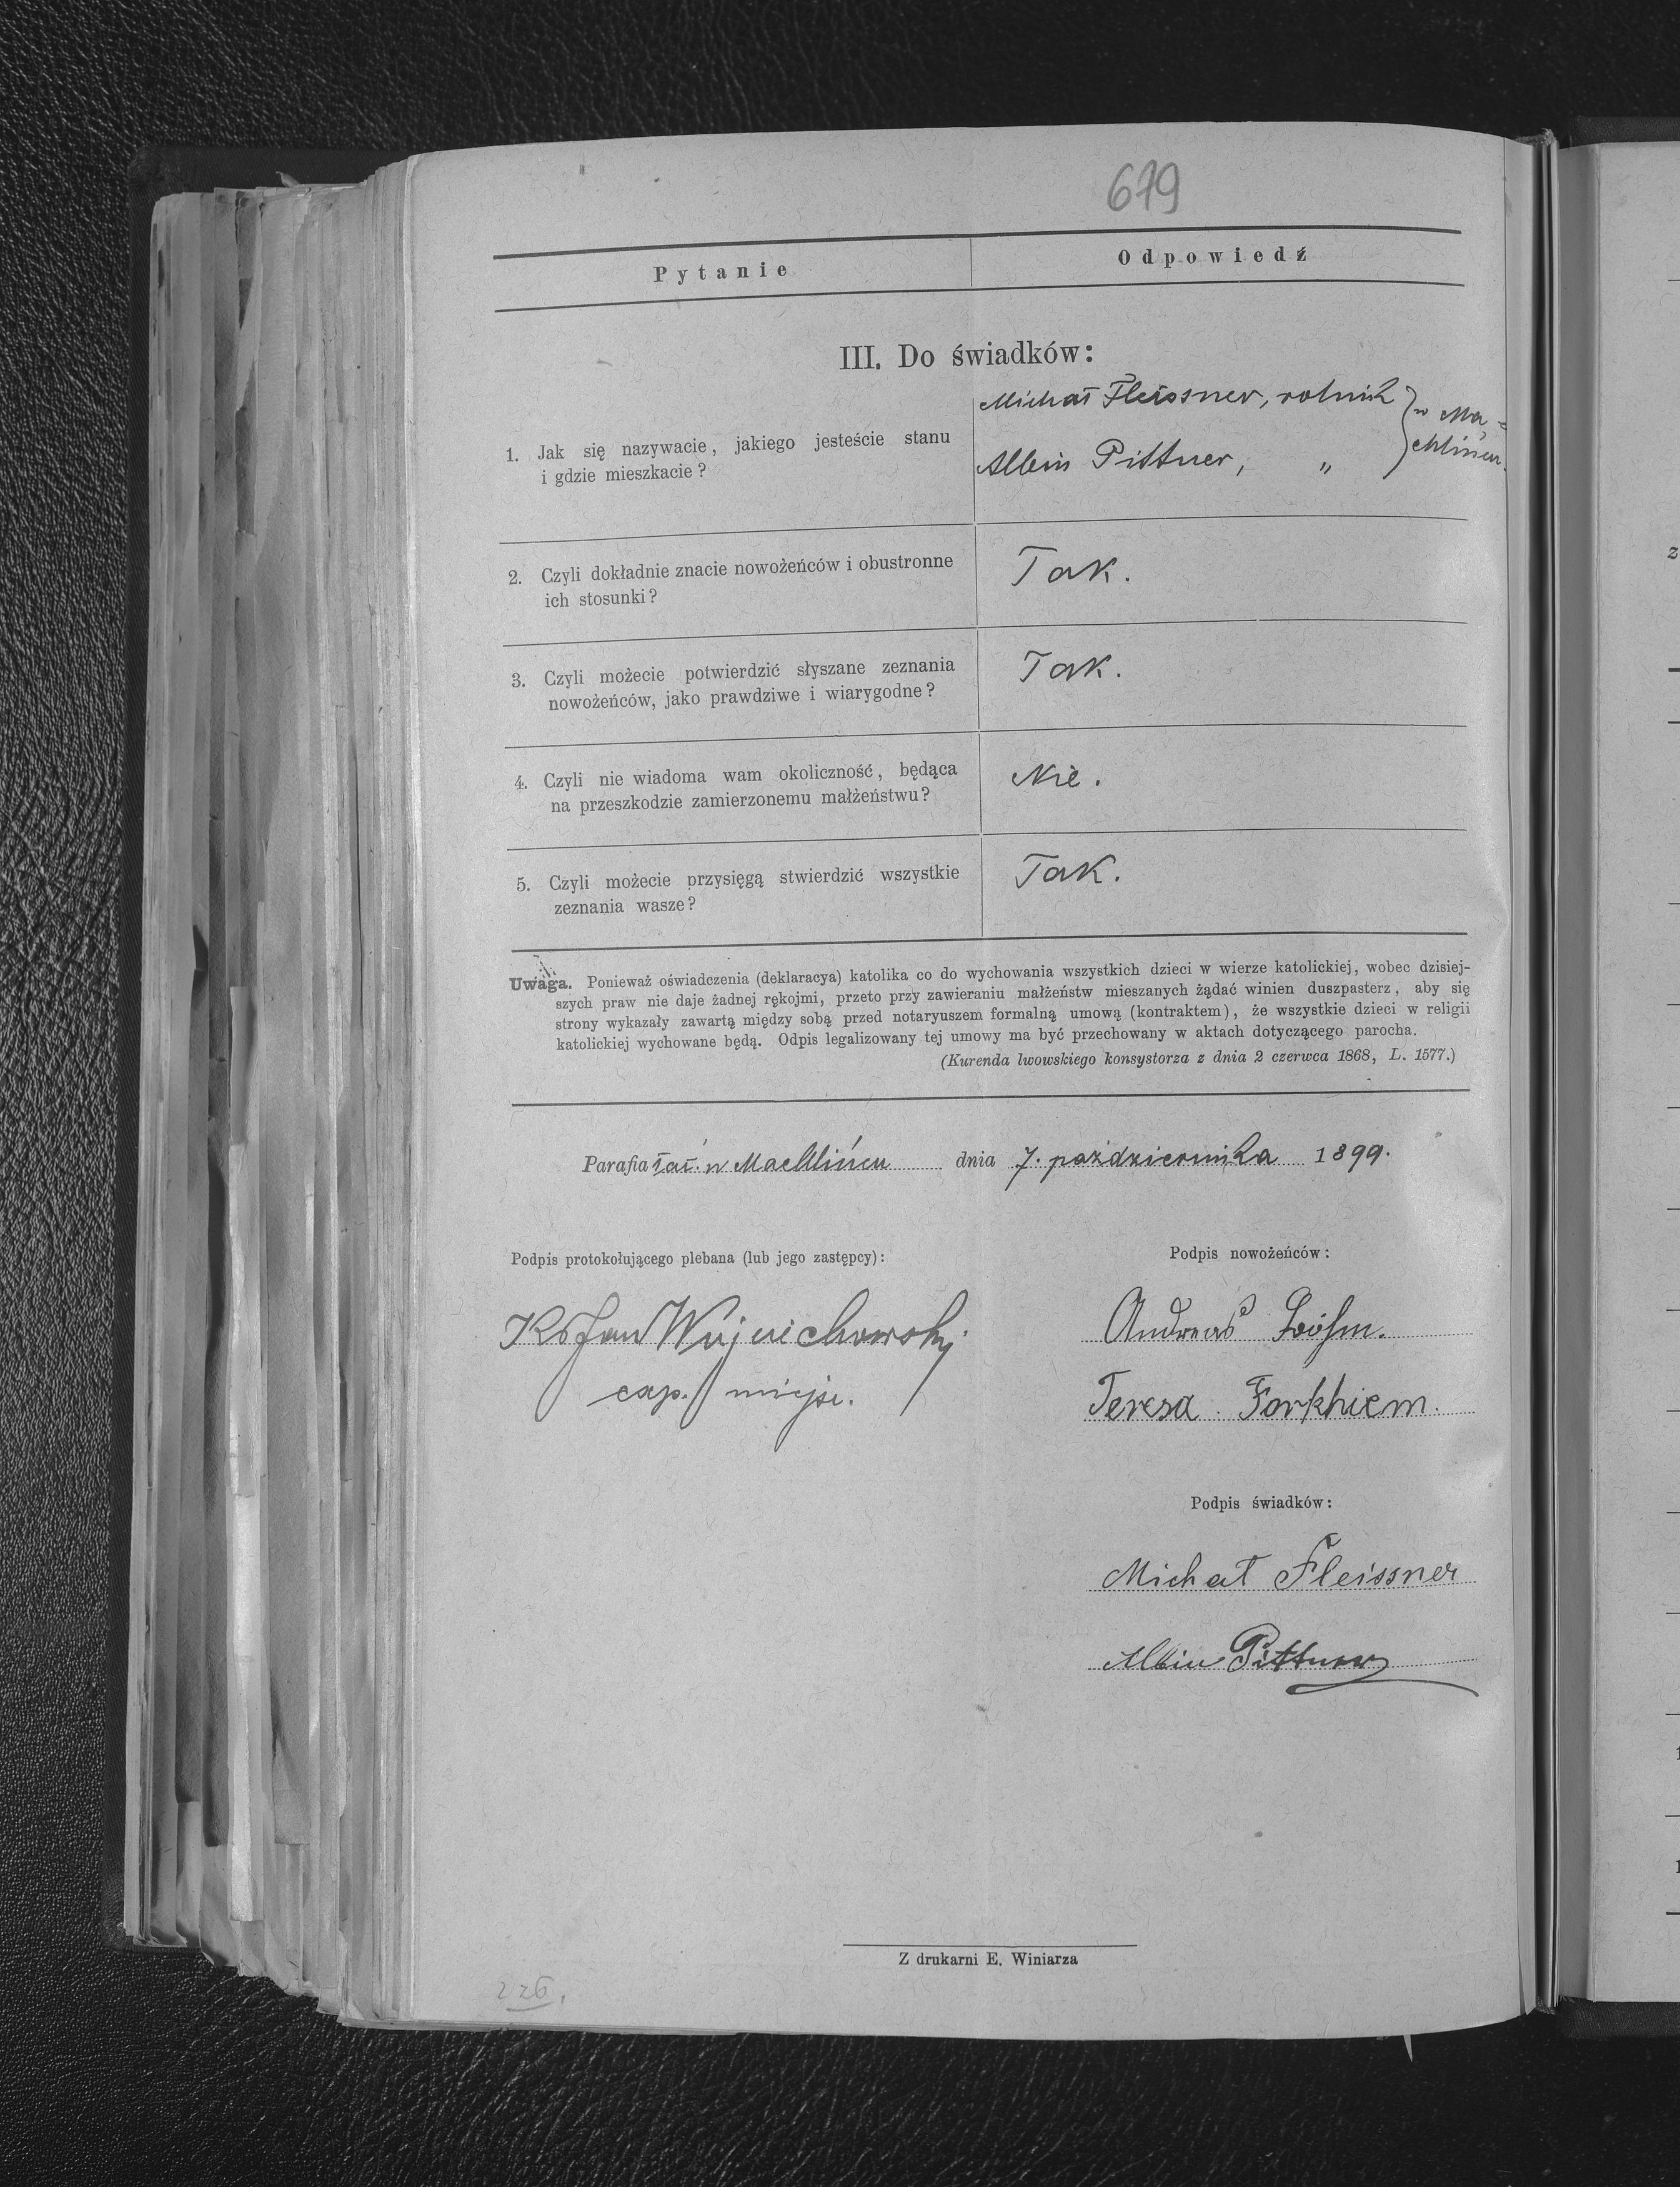 679
Pytanie
Odpowiedź
III. Do świadków:
1. Jak się nazywacie, jakiego jesteście stanu
i gdzie mieszkacie?
Michał Fleissner, rolnik
Albin Pittner, "
w Ma=
chlińcu.
2. Czyli dokładnie znacie nowożeńców i obustronne
ich stosunki?
Tak.
3. Czyli możecie potwierdzić słyszane zeznania
nowożeńców, jako prawdziwe i wiarygodne?
Tak.
4. Czyli nie wiadoma wam okoliczność, będąca
na przeszkodzie zamierzonemu małżeństwu?
Nie.
5. Czyli możecie przysięgą stwierdzić wszystkie
zeznania wasze?
Tak.
Uwaga. Ponieważ oświadczenia (deklaracya) katolika co do wychowania wszystkich dzieci w wierze katolickiej, wobec dzisiej-
szych praw nie daje żadnej rękojmi, przeto przy zawieraniu małżeństw mieszanych żądać winien duszpasterz, aby się
strony wykazały zawartą między sobą przed notaryuszem formalną umową (kontraktem), że wszystkie dzieci w religii
katolickiej wychowane będą. Odpis legalizowany tej umowy ma być przechowany w aktach dotyczącego parocha.
(Kurenda lwowskiego konsystorza z dnia 2 czerwca 1868, L. 1577.)
Parafia łać. w Machlińcu dnia 7. października 1899.
Podpis protokołującego plebana (lub jego zastępcy):
Ks Jan Wojciechowski
exp. miejsc.
Podpis nowożeńców:
Andreas Böhm.
Teresa Forkhiem.
Podpis świadków:
Michał Fleissner
Albin Pittner
Z drukarni E. Winiarza
226.